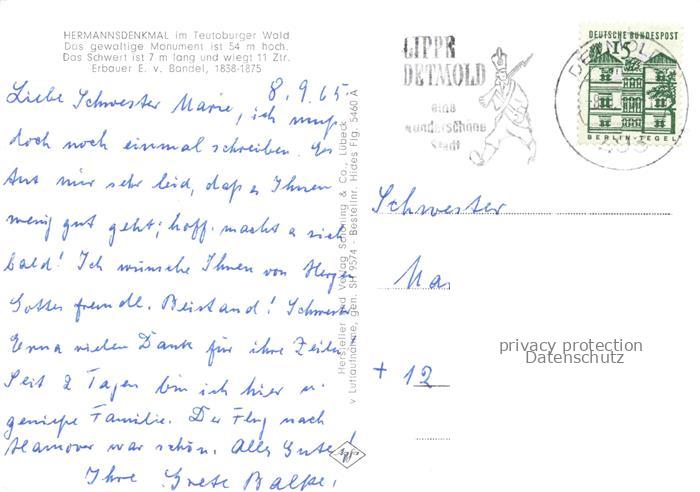 HERMANNSDENKMAL im Teutoburger Wald
Das gewaltige Monument ist 54 m hoch.
Das Schwert ist 7 m lang und wiegt 11 Ztr.
Erbauer E. v. Bandel, 1838-1875
8.9.65
Liebe Schwester Marie, ich muß
doch noch einmal schreiben. Es
tut mir sehr leid, daß es Ihnen
wenig gut geht; hoff. macht es sich
bald! Ich wünsche Ihnen von Herzen
Gottes freundl. Beistand! Schwester
Erna vielen Dank für ihre Zeilen!
Seit 2 Tagen bin ich hier u.
genieße Familie. Der Flug nach
Hannover war schön. Alles Gute!
Ihre Grete Balke.
Hersteller und Verlag Schöning & Co., Lübeck
Luftaufnahme, gen. SH 9574 - Bestellnr. Hides Flg. 5460 A
Agfa
LIPPE
DETMOLD
eine
wunderschöne
Stadt
DEUTSCHE BUNDESPOST
15
BERLIN-TEGEL
DETMOLD
Schwester
Ma
+ 12
privacy protection
Datenschutz